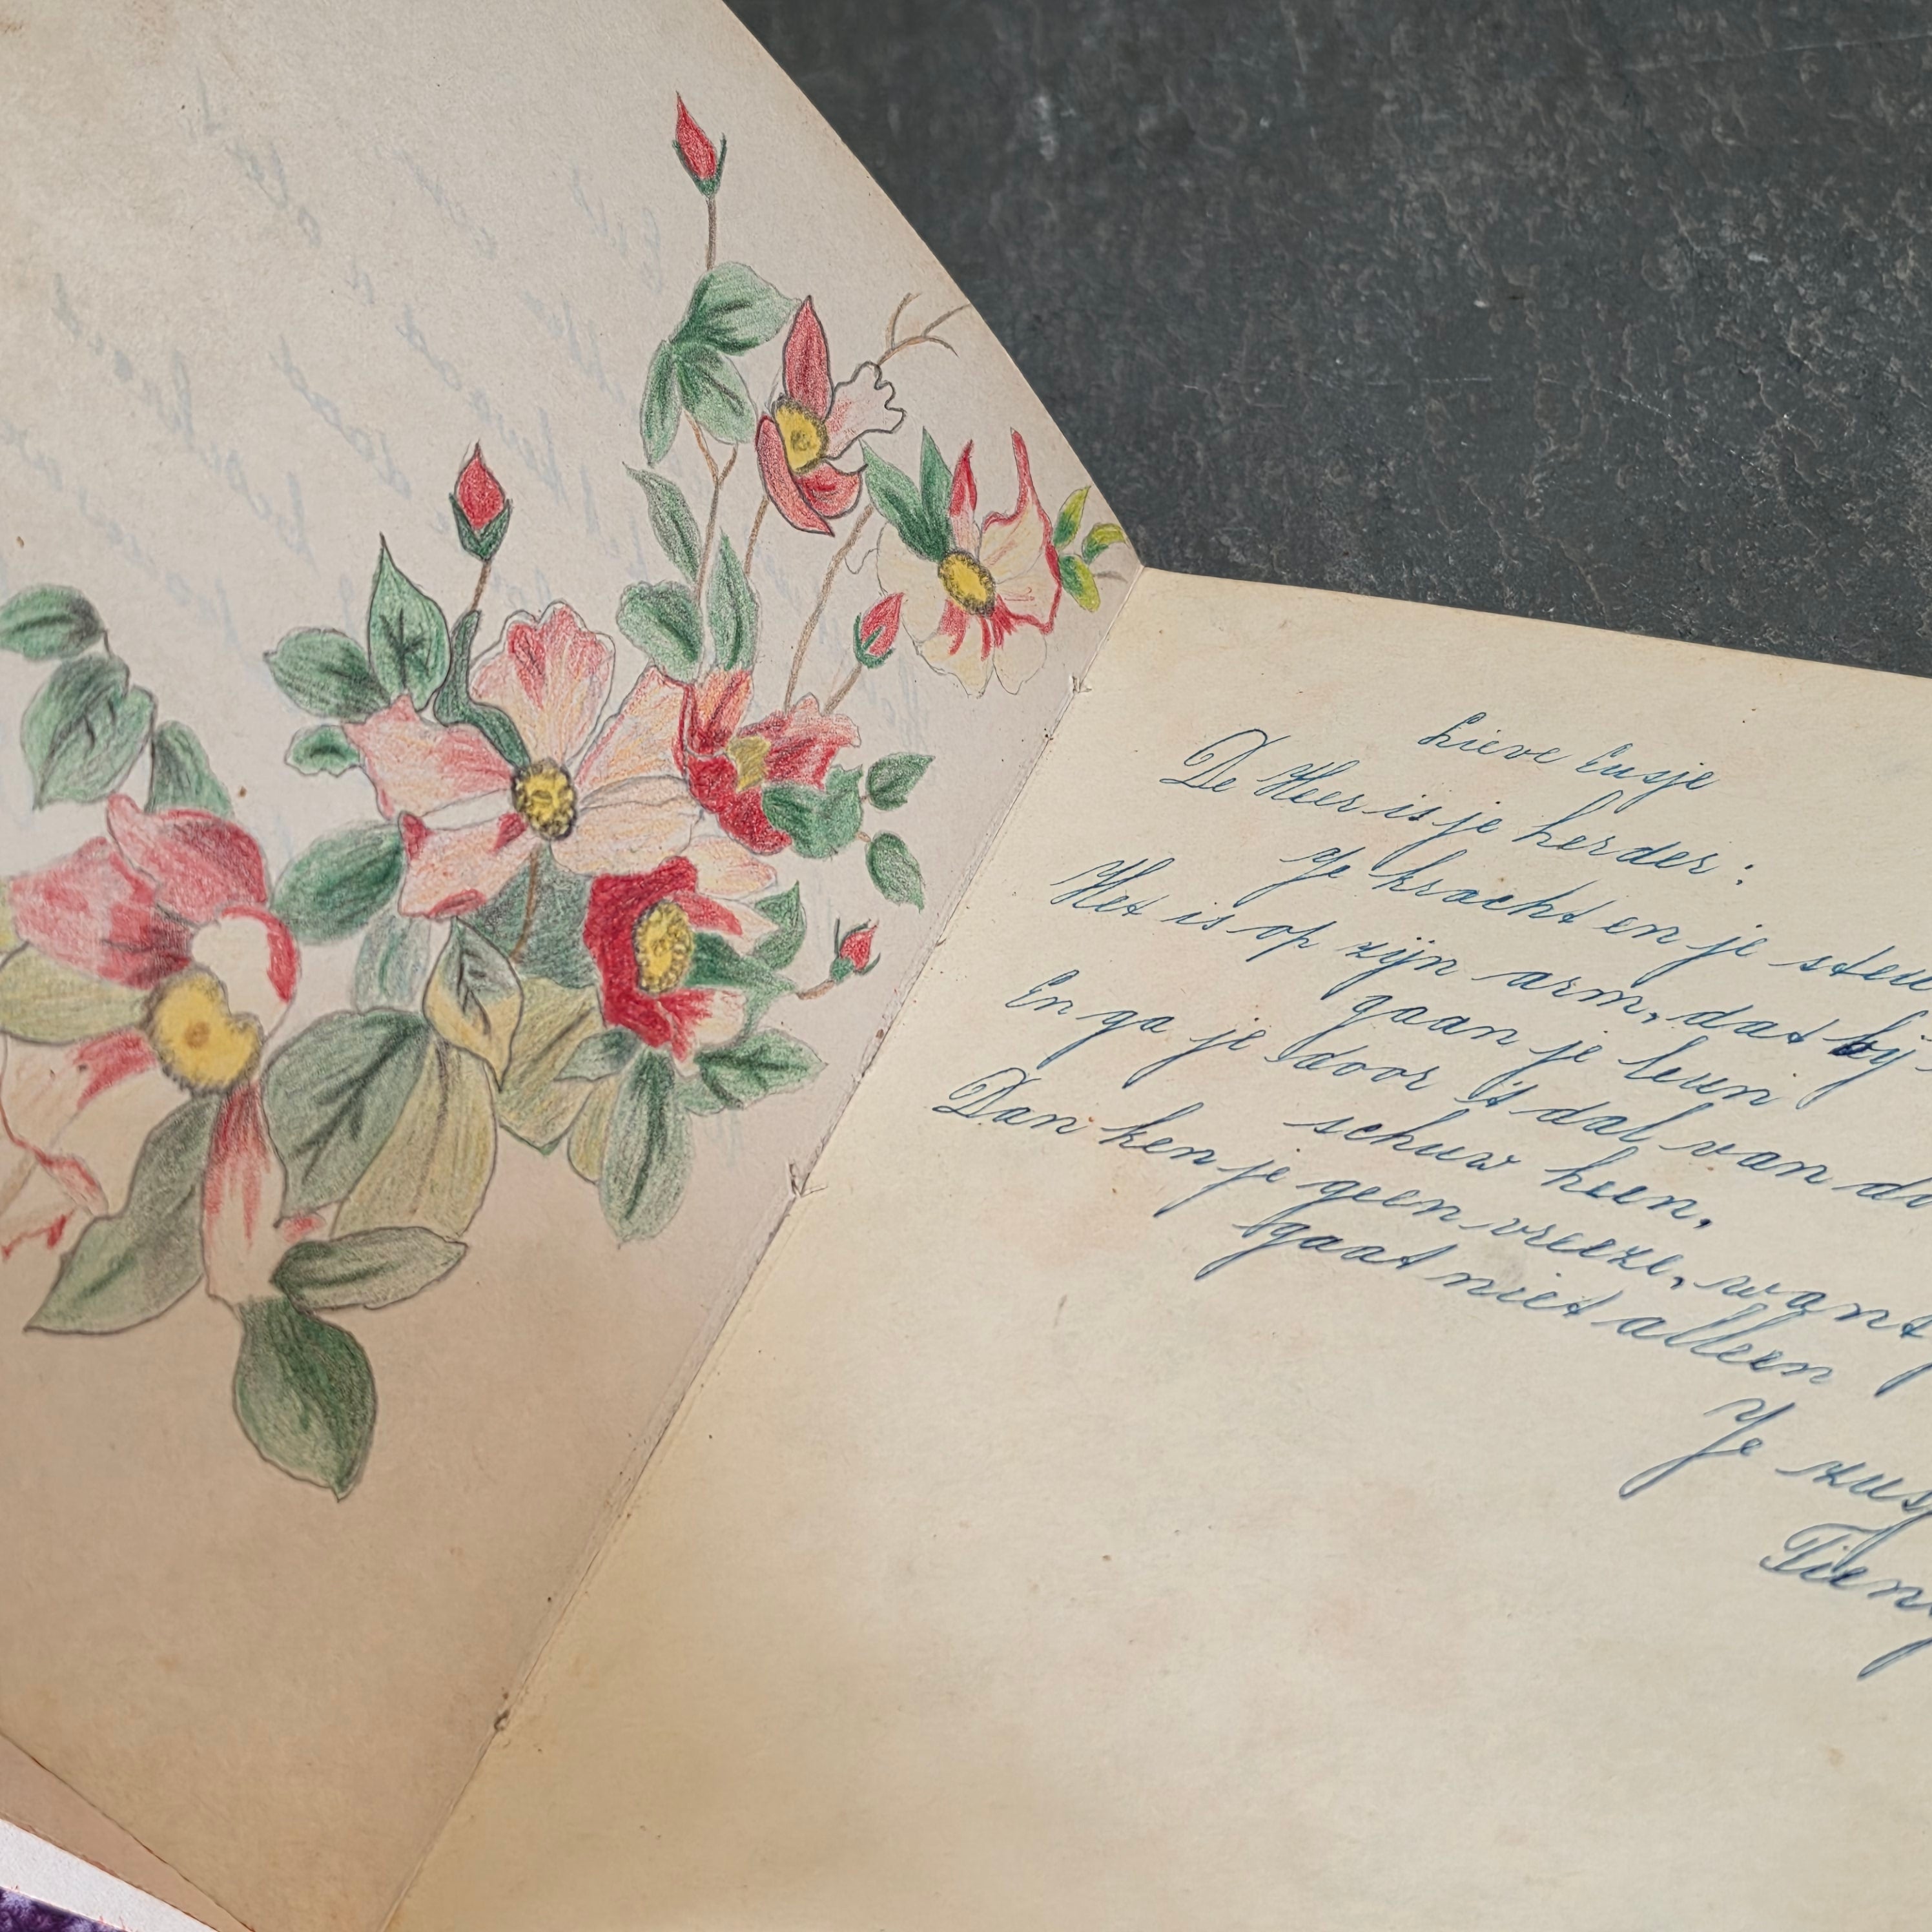 Lieve Eusje
De Heer is je herder:
Je kracht en je steu
Het is op zijn arm, dat bij
gaan je leun
En ga je door 't dal van d
schuw heen,
Dan ken je geen vreeze, want
gaat niet alleen
Je zus
Tien